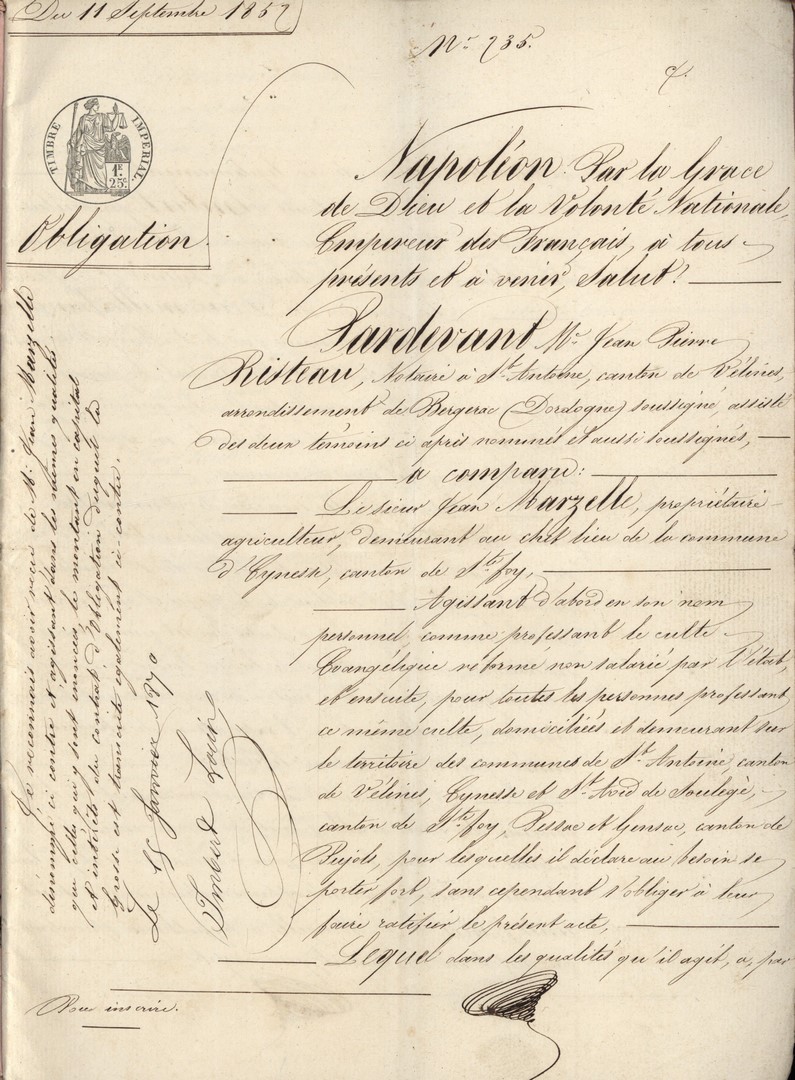 Du 11 Septembre 1857
N° 235.
TIMBRE IMPERIAL
1F.
25c.
Obligation.
Napoléon Par la Grace
de Dieu et la Volonté Nationale,
Empereur des Français, à tous
présents et à venir, Salut!
Pardevant Me Jean Pierre
Risteau, Notaire à St Antoine, canton de Vélines,
arrondissement de Bergerac (Dordogne) soussigné, assisté
des deux témoins ci après nommés et aussi soussignés,
a comparu:
Le sieur Jean Marzelle, propriétaire
agriculteur, demeurant au chef lieu de la commune
d'Eynesse, canton de Ste foy,
Agissant d'abord en son nom
personnel, comme professant le culte
Evangélique réformé non salarié par l'état,
et ensuite, pour toutes les personnes professant
ce même culte, domiciliées et demeurant sur
le territoire des communes de St Antoine, canton
de Vélines, Eynesse et St Avid de Soulège,
canton de Ste foy, Pessac et Gensac, canton de
Pujols, pour lesquelles il déclare au besoin se
porter fort, sans cependant s'obliger à leur
faire ratifier le présent acte,
Lequel dans les qualités qu'il agit, a, par
Je reconnais avoir reçu de Mr Jean Marzelle
dénommé ci contre et agissant dans les mêmes qualités
que celles qui y sont énoncés, le montant en capital
et intérêts du contrat d'Obligation duquel la
Grosse est transcrite également ci-contre.
Le 15 Janvier 1870
Imbert Louis
Pour inscrire.